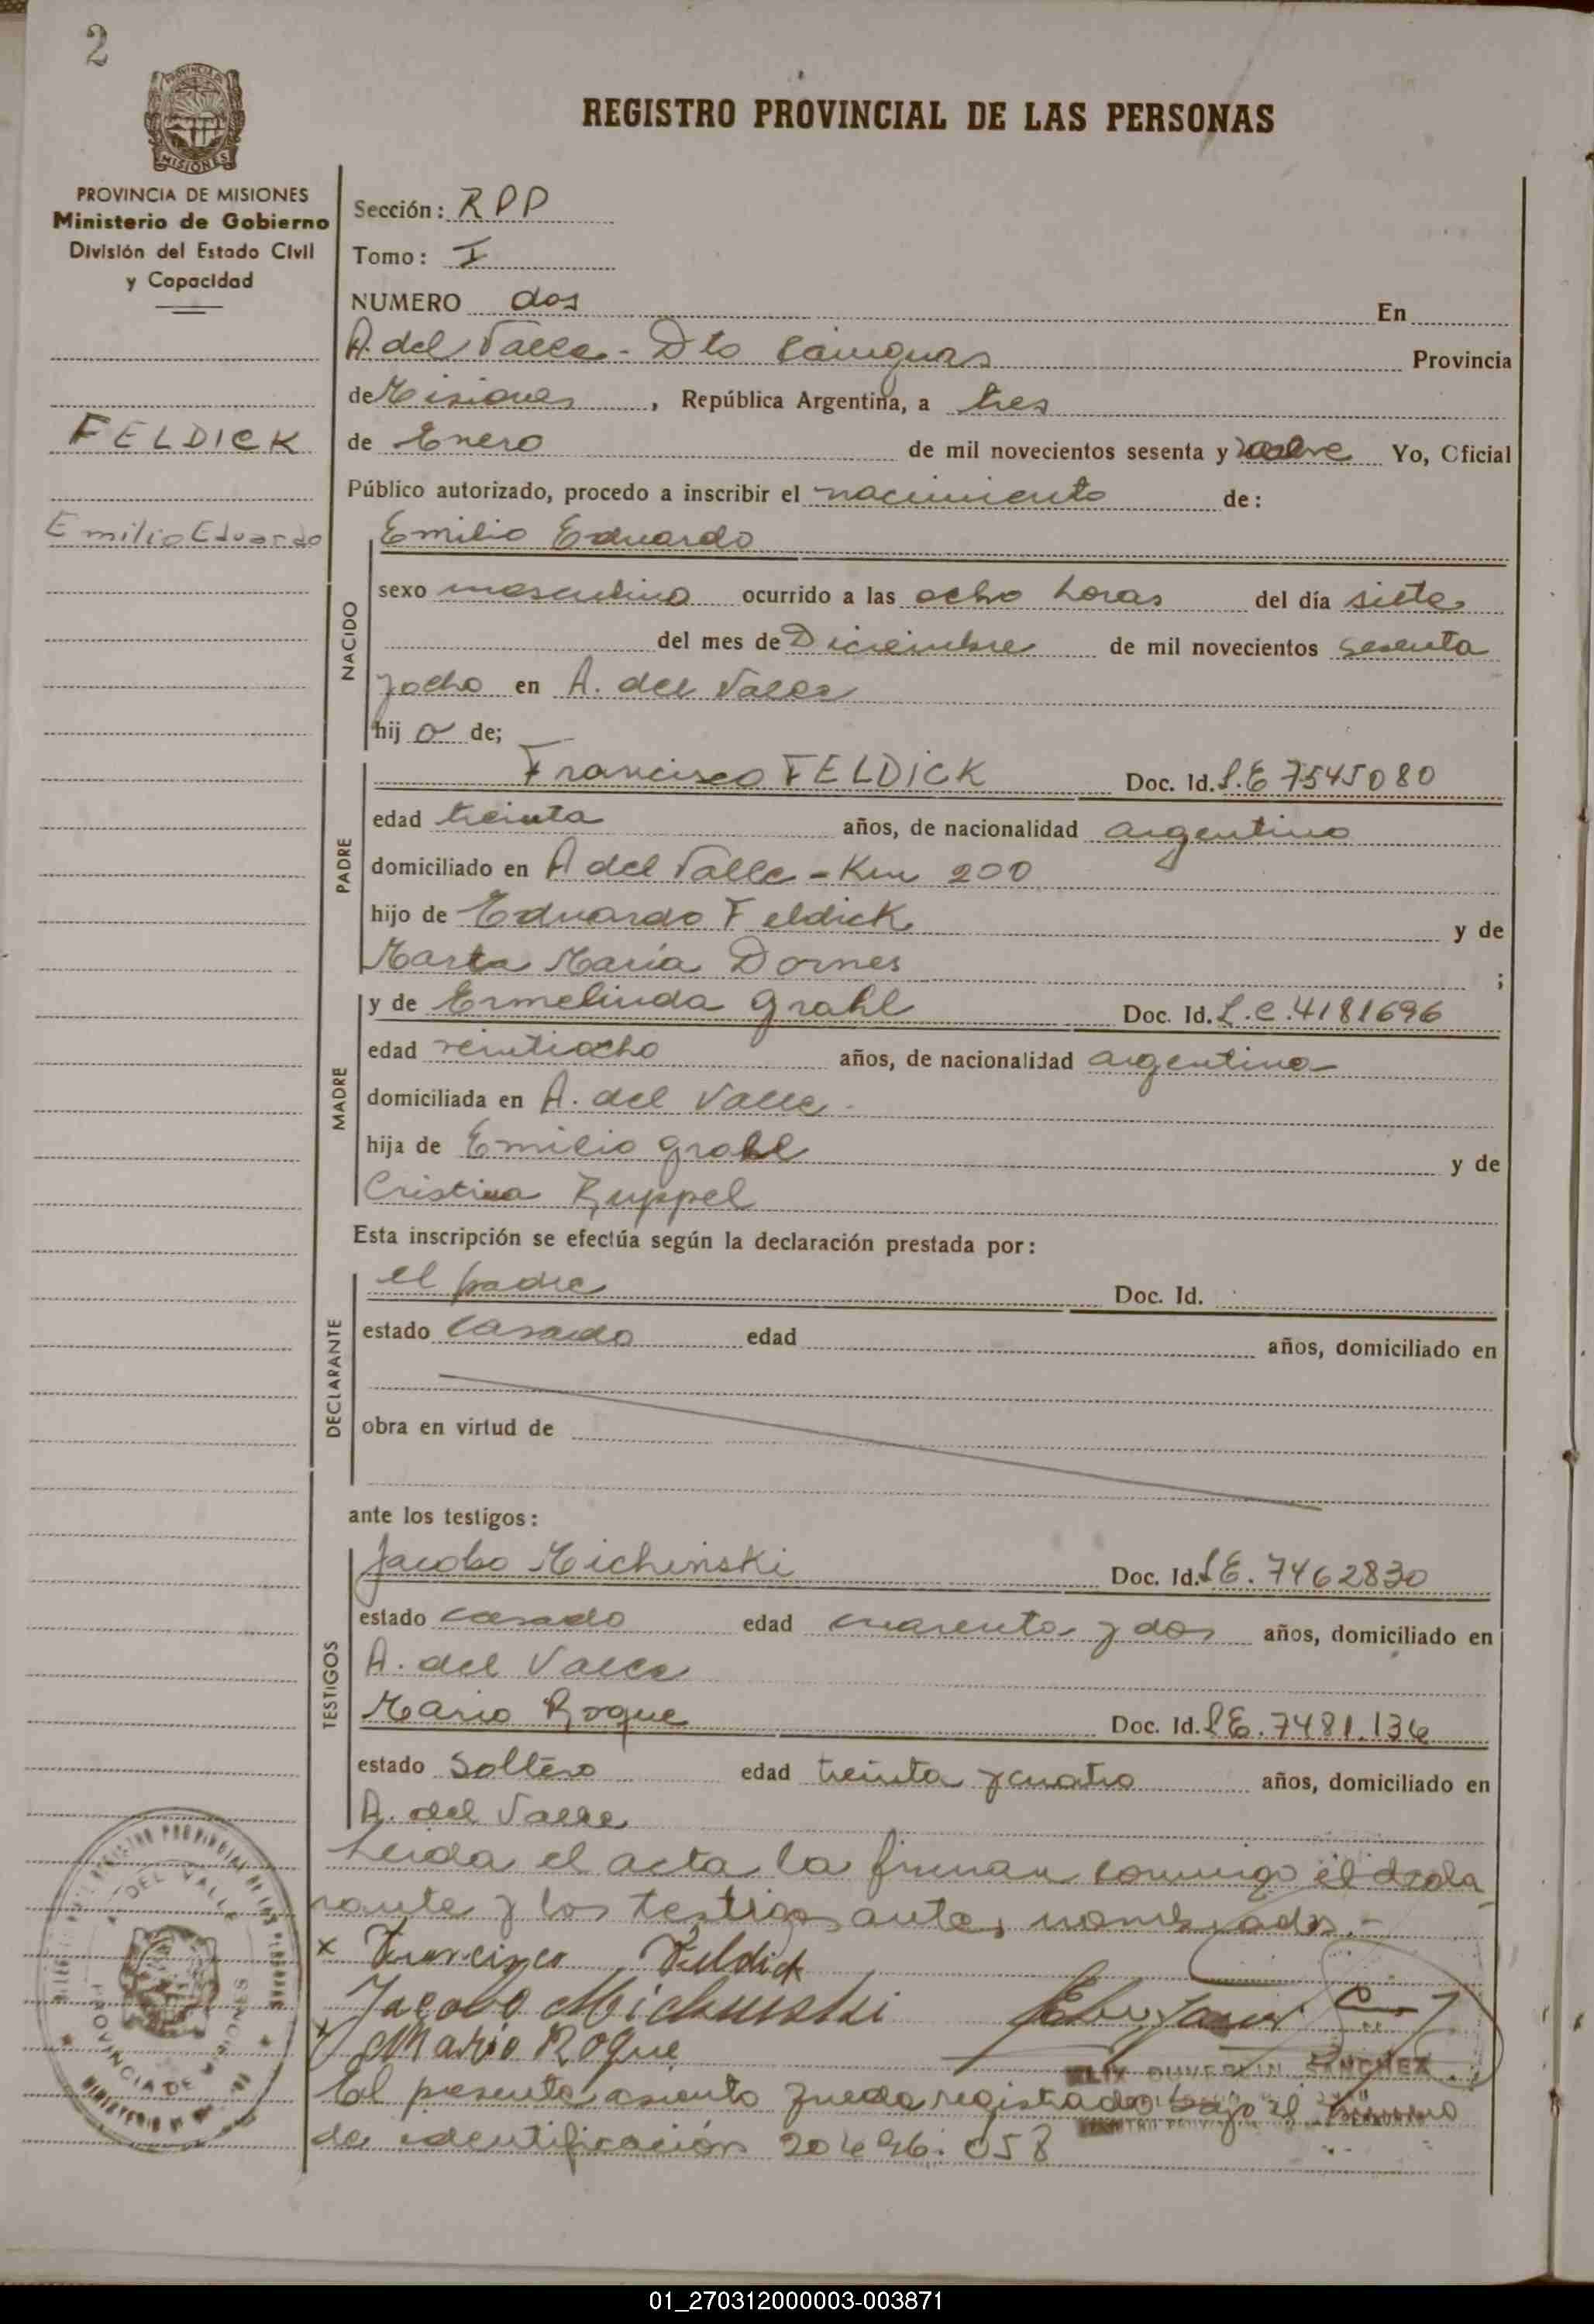 2
PROVINCIA DE MISIONES
Ministerio de Gobierno
División del Estado Civil
y Capacidad
FELDICK
Emilio Eduardo
REGISTRO PROVINCIAL DE LAS PERSONAS
Sección: RPP
Tomo: I
NUMERO dos En
A. del Valle - Dto Cainguas Provincia
de Misiones, República Argentina, a tres
de Enero de mil novecientos sesenta y nueve Yo, Oficial
Público autorizado, procedo a inscribir el nacimiento de:
Emilio Eduardo
NACIDO
sexo masculino ocurrido a las ocho horas del día siete
del mes de Diciembre de mil novecientos sesenta
y ocho en A. del Valle
hijo de;
PADRE
Francisco FELDICK Doc. Id. L.E 7545080
edad treinta años, de nacionalidad argentino
domiciliado en A del Valle - Km 200
hijo de Eduardo Feldick y de
Marta María Dornes ;
MADRE
y de Ermelinda Grahl Doc. Id. L.C. 4181696
edad veintiocho años, de nacionalidad argentina
domiciliada en A. del Valle.
hija de Emilio Grahl y de
Cristina Ruppel
Esta inscripción se efectúa según la declaración prestada por:
DECLARANTE
el padre Doc. Id.
estado casado edad años, domiciliado en
obra en virtud de
ante los testigos:
TESTIGOS
Jacobo Michinski Doc. Id. L.E. 7462830
estado casado edad cuarenta y dos años, domiciliado en
A. del Valle
Mario Roque Doc. Id. L.E. 7481.136
estado soltero edad treinta y cuatro años, domiciliado en
A. del Valle
Leida el acta la firman conmigo el decla
rante y los testigos antes nombrados.-
x Francisco Feldick
Jacobo Michinski
x Mario Roque
SANCHEZ
El presente asiento queda registrado bajo el
de identificación 20.496.058
DEL VALLE
PROVINCIA DE MISIONES
01_270312000003-003871